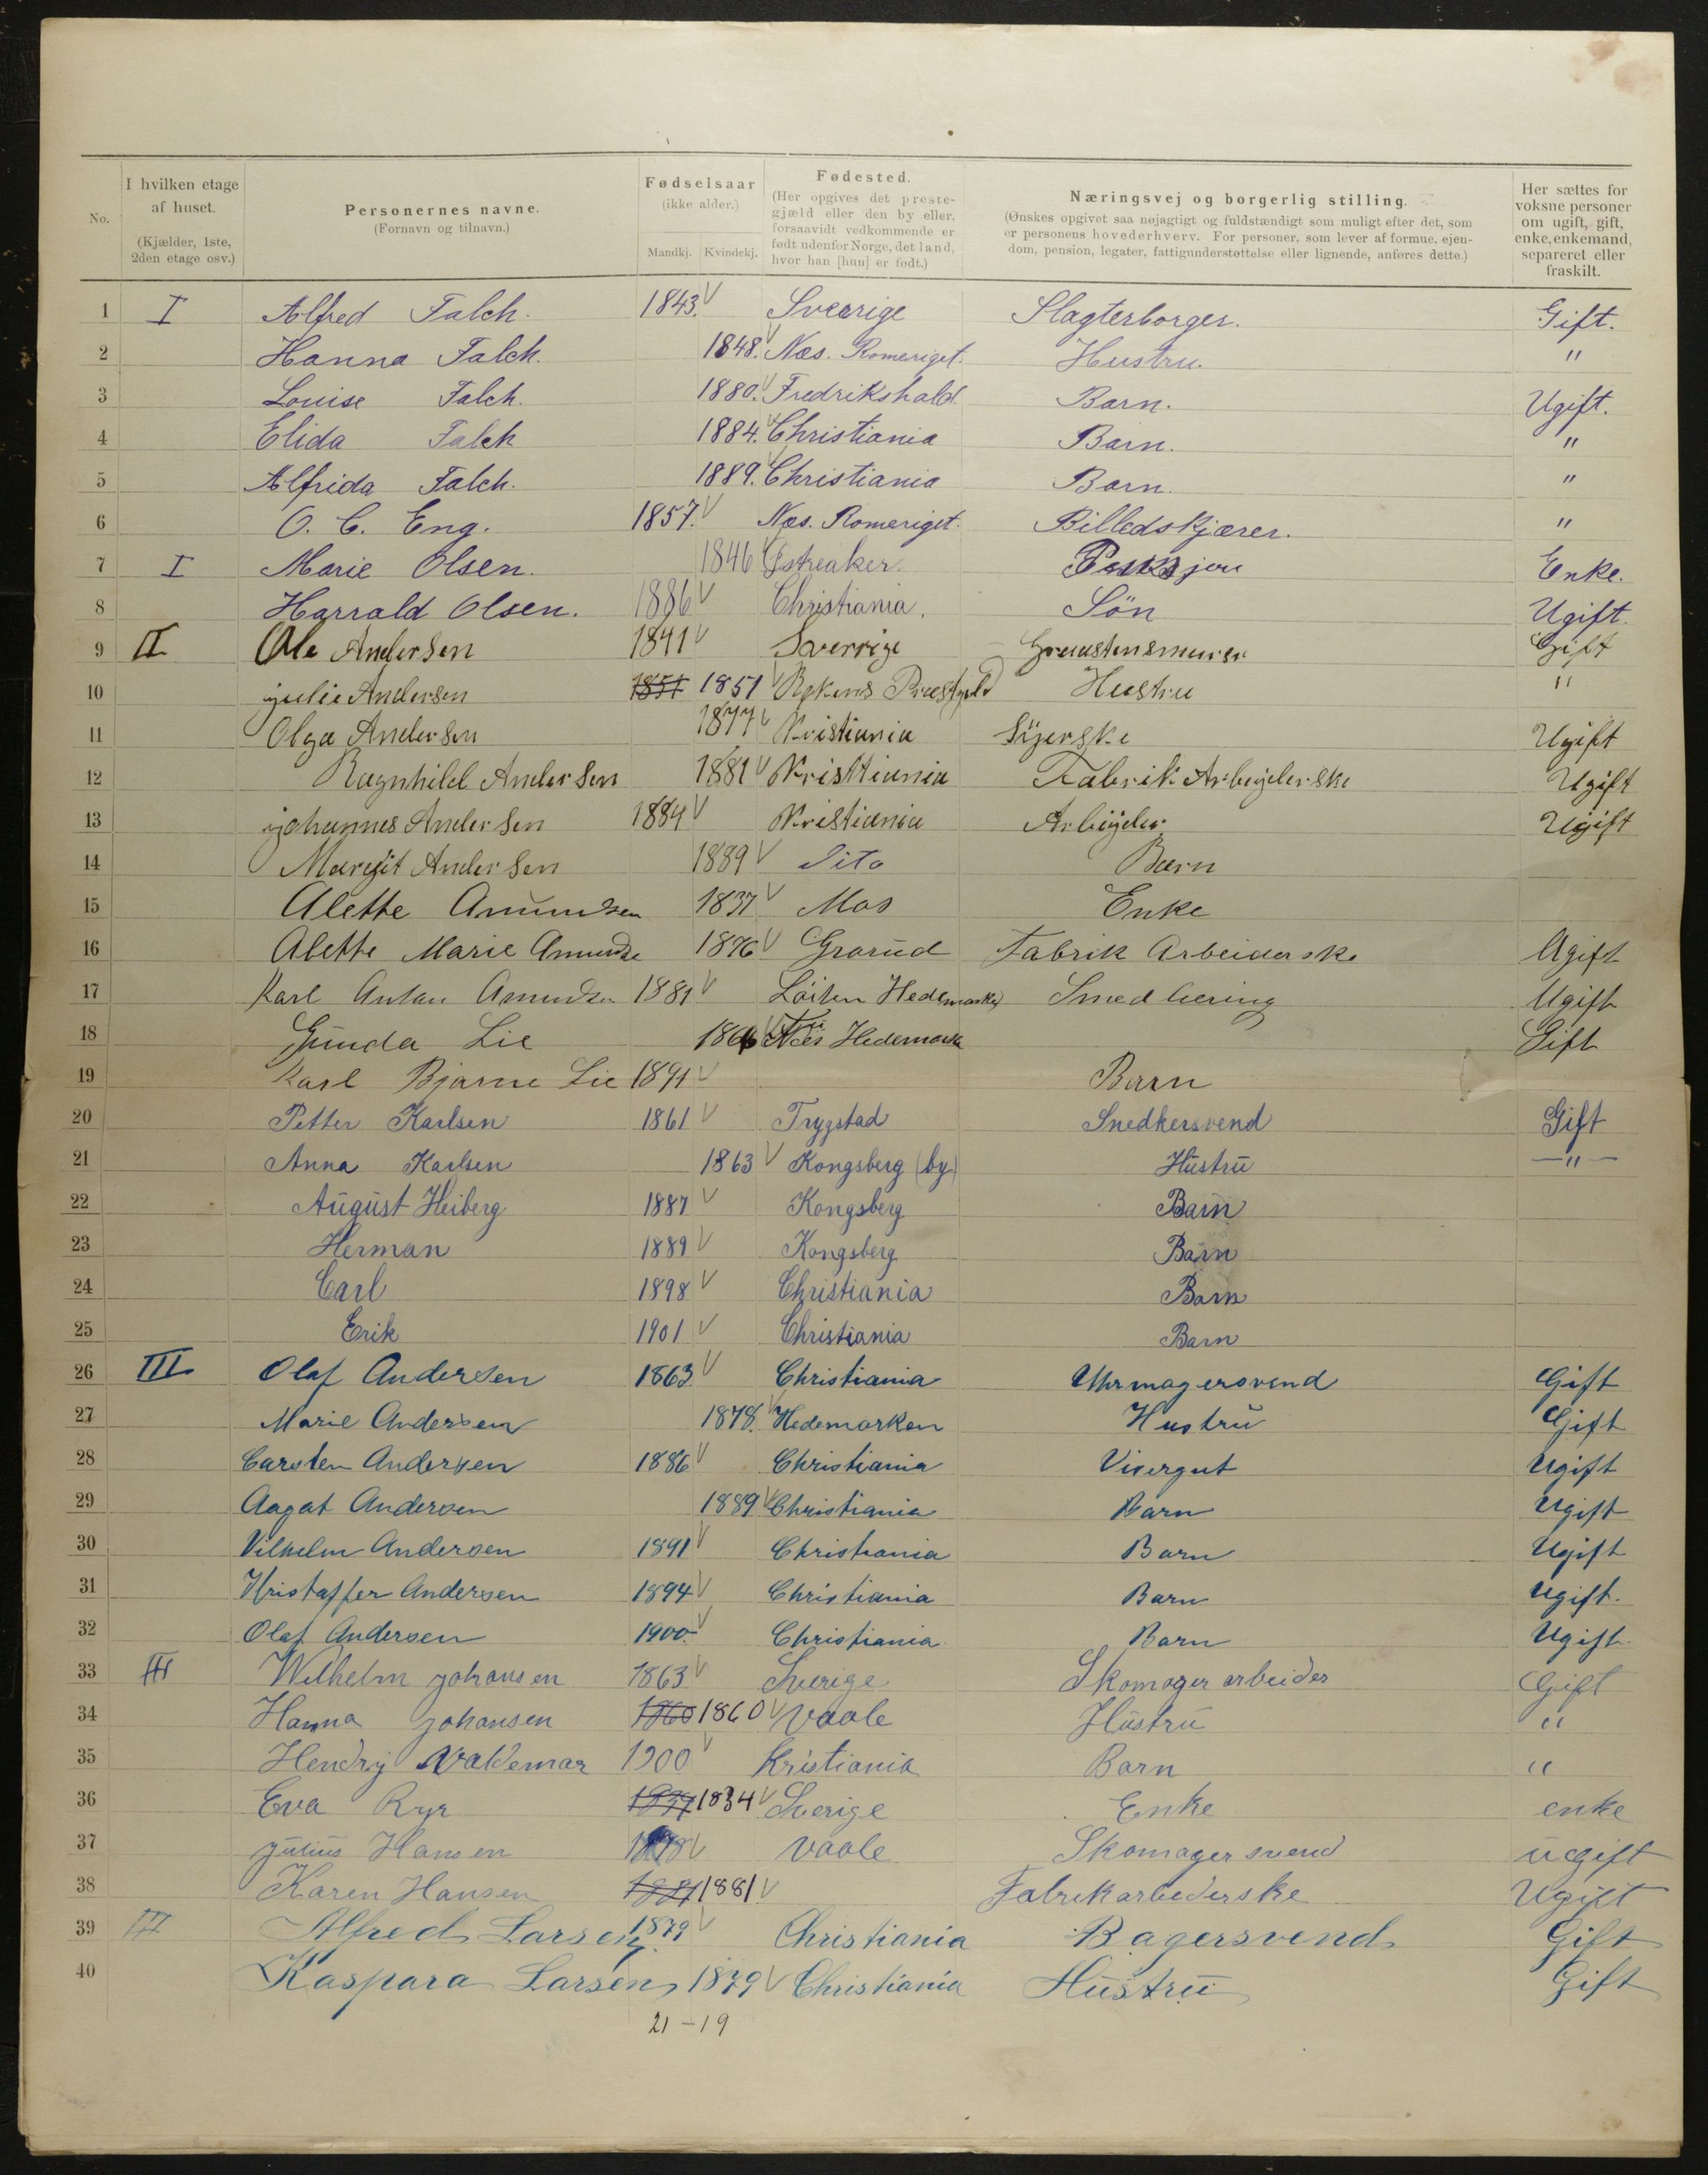 No.
I hvilken etage af huset. (Kjælder, 1ste, 2den etage osv.)
Personernes navne. (Fornavn og tilnavn.)
Fødselsaar (ikke alder.) Mandkj. Kvindekj.
Fødested. (Her opgives det prestegjæld eller den by eller, forsaavidt vedkommende er født udenfor Norge, det land, hvor han [hun] er født.)
Næringsvej og borgerlig stilling. (Ønskes opgivet saa nøjagtigt og fuldstændigt som muligt efter det, som er personens hovederhverv. For personer, som lever af formue, ejendom, pension, legater, fattigunderstøttelse eller lignende, anføres dette.)
Her sættes for voksne personer om ugift, gift, enke, enkemand, separeret eller fraskilt.
1 I Alfred Falch. 1843. Sverrige Slagterborger. Gift.
2 Hanna Falch. 1848. Næs. Romeriget. Hustru. "
3 Louise Falch. 1880. Fredrikshald. Barn. Ugift.
4 Elida Falch 1884. Christiania Barn. "
5 Alfrida Falch. 1889. Christiania Barn. "
6 O. C. Eng. 1857. Næs. Romeriget. Billedskjærer. "
7 I Marie Olsen. 1846 Østreaker. Enke.
8 Harrald Olsen. 1886 Christiania. Sön Ugift.
9 II Ole Andersen 1841 Sverrige Graustensmurer Gift
10 julie Andersen 1851 1851 Røkens Præstgeld Hustru "
11 Olga Andersen 1877 Kristiania Sÿerske Ugift
12 Ragnhild Andersen 1881 Kristtiania Fabrik Arbeÿderske Ugift
13 johannes Andersen 1884 Kristiania Arbeÿder Ugift
14 Margit Andersen 1889 Dito Barn
15 Alette Amundsen 1837 Mos Enke
16 Alette Marie Amundse 1876 Grorud Fabrik Arbeiderske Ugift
17 Karl Anton Amundsen 1881 Löiten Hedemarken Smedlæring Ugift
18 Gunda Lie 1866 Næs Hedemark Gift
19 Karl Bjarne Lie 1891 Barn
20 Petter Karlsen 1861 Trygstad Snedkersvend Gift
21 Anna Karlsen 1863 Kongsberg (by) Hustru —"—
22 August Heiberg 1887 Kongsberg Barn
23 Herman 1889 Kongsberg Barn
24 Carl 1898 Christiania Barn
25 Erik 1901 Christiania Barn
26 III Olaf Andersen 1863 Christiania Uhrmagersvend Gift
27 Marie Andersen 1878. Hedemarken Hustru Gift
28 Carsten Andersen 1886 Christiania Visergut Ugift
29 Aagat Andersen 1889 Christiania Barn Ugift
30 Vilhelm Andersen 1891 Christiania Barn Ugift
31 Kristaffer Andersen 1894 Christiania Barn Ugift.
32 Olaf Andersen 1900. Christiania Barn Ugift.
33 III Wilhelm johansen 1863 Sverige Skomager arbeider Gift
34 Hanna johansen 1860 1860 Vaale Hustru "
35 Hendrij Valdemar 1900 Kristiania Barn "
36 Eva Ryr 1834 Sverige Enke enke
37 julius Hansen Vaale Skomager svend ugift
38 Karen Hansen 1881 1881 Fabrikarbederske Ugift
39 III Alfred Larsen 1879 Christiania Bagersvend Gift
40 Kaspara Larsen 1879 Christiania Hustru Gift
21 – 19